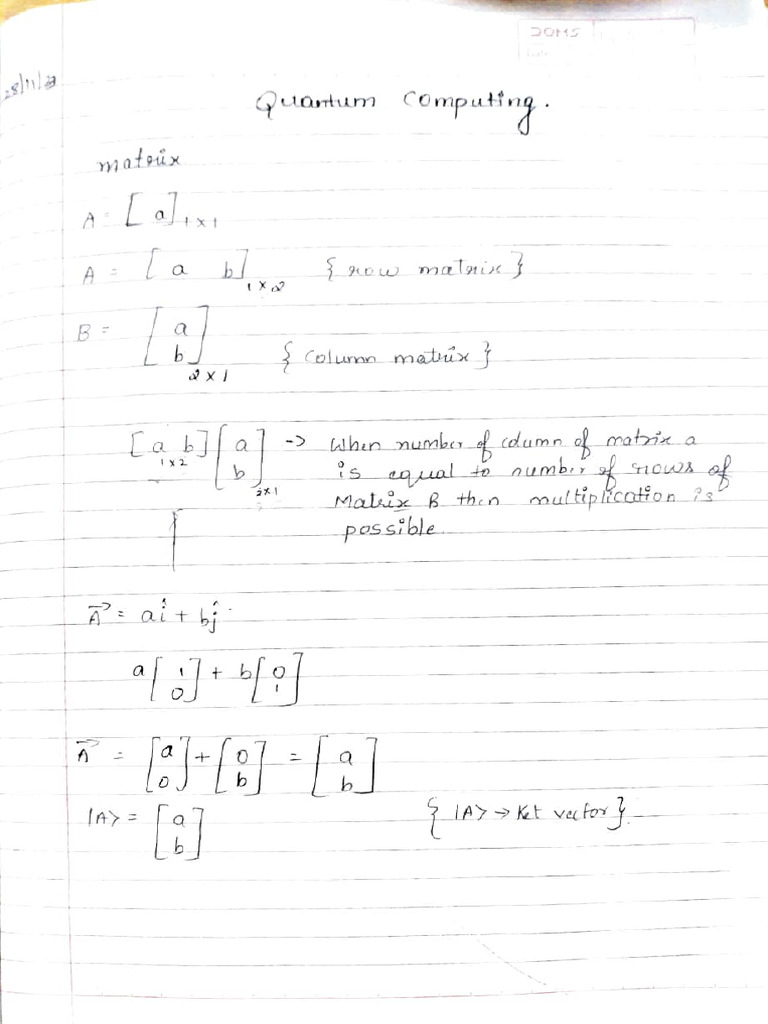 DOMS
28/11/23
Quantum Computing.
matrix
A = [ a ] 1 x 1
A = [ a b ] 1 x 2 { row matrix }
B = [ a
b ] 2 x 1 { column matrix }
[ a b ] 1 x 2 [ a
b ] 2x1 -> When number of column of matrix a
is equal to number of rows of
Matrix B then multiplication is
possible
A⃗ = aî + bĵ
a [ 1
0 ] + b [ 0
1 ]
A⃗ = [ a
0 ] + [ 0
b ] = [ a
b ]
|A> = [ a
b ] { |A> → Ket vector }